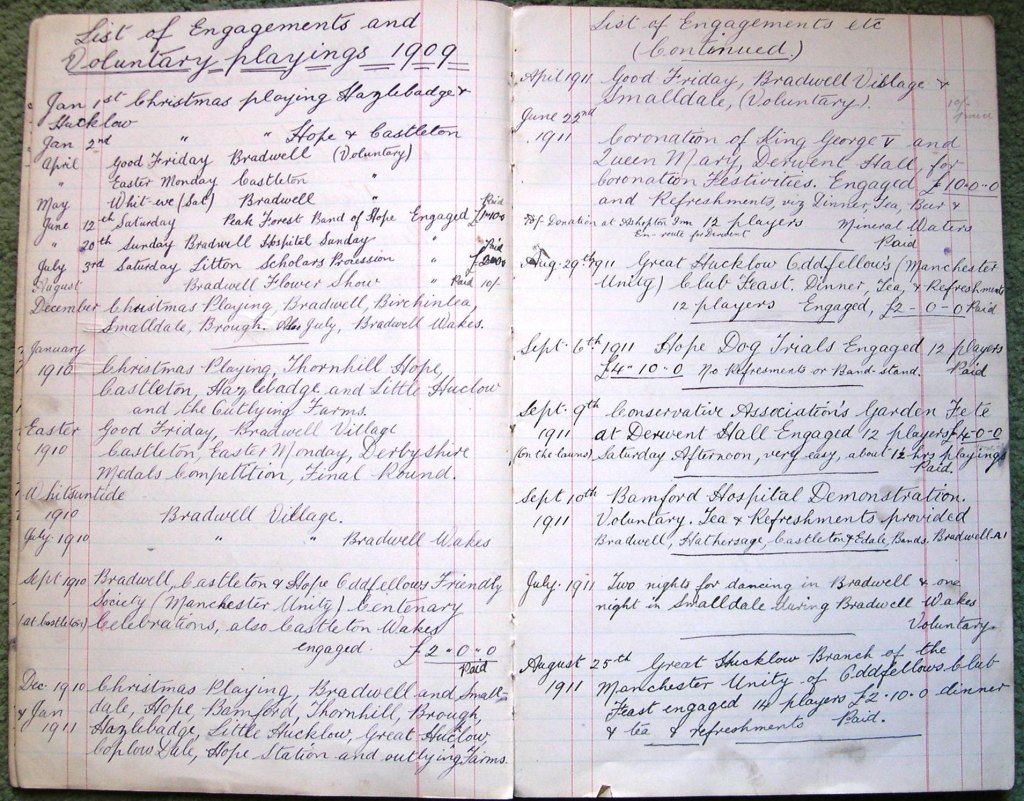 List of Engagements and
Voluntary playings 1909
Jan 1st Christmas playing Hazlebadge &
Hucklow
Jan 2nd " " Hope & Castleton
April Good Friday Bradwell (Voluntary)
" Easter Monday Castleton "
May Whit-we (Sat) Bradwell "
June 12th Saturday Peak Forest Band of Hope Engaged Paid
" 20th Sunday Bradwell Hospital Sunday "
July 3rd Saturday Litton Scholars Procession " Paid
August Bradwell Flower Show " Paid 10/-
December Christmas Playing, Bradwell, Birchinlea,
Smalldale, Brough. July, Bradwell Wakes.
January
1910 Christmas Playing, Thornhill Hope,
Castleton, Hazlebadge and Little Huclow
and the Outlying Farms.
Easter Good Friday, Bradwell Village
1910 Castleton, Easter Monday, Derbyshire
Medals Competition, Final Round.
Whitsuntide
1910 Bradwell Village.
July 1910 " " Bradwell Wakes
Sept 1910 Bradwell, Castleton & Hope Oddfellows Friendly
Society (Manchester Unity) Centenary
(at Castleton) Celebrations, also Castleton Wakes
engaged £2-0-0
Paid
Dec. 1910 Christmas Playing, Bradwell and Small-
& Jan dale, Hope, Bamford, Thornhill, Brough,
1911 Hazlebadge, Little Hucklow, Great Huclow
Coplow Dale, Hope Station and outlying Farms.
List of Engagements etc
(Continued.)
April 1911 Good Friday, Bradwell Village &
Smalldale, (Voluntary)
June 22nd
1911 Coronation of King George V and
Queen Mary, Derwent Hall, for
Coronation Festivities. Engaged £10-0-0
and Refreshments, viz Dinner, Tea, Beer &
Donation at Ashopton Inn 12 players Mineral Waters
En-route for Derwent Paid
Aug 29th 1911 Great Hucklow Oddfellow's (Manchester
Unity) Club Feast. Dinner, Tea, & Refreshments
12 players Engaged, £2-0-0 Paid
Sept. 6th 1911 Hope Dog Trials Engaged 12 players
£4-10-0 No Refresments or Band-stand. Paid
Sept. 9th Conservative Association's Garden Fete
1911 at Derwent Hall Engaged 12 players £4-0-0
(on the lawns) Saturday Afternoon, very easy, about 1½ hrs playings
Paid.
Sept 10th Bamford Hospital Demonstration.
1911 Voluntary. Tea & Refreshments provided
Bradwell, Hathersage, Castleton & Edale, Bands. Bradwell A1
July. 1911 Two nights for dancing in Bradwell & one
night in Smalldale during Bradwell Wakes
Voluntary.
August 25th Great Hucklow Branch of the
1911 Manchester Unity of Oddfellows Club
Feast engaged 14 players £2.10.0 dinner
& tea & refreshments Paid.